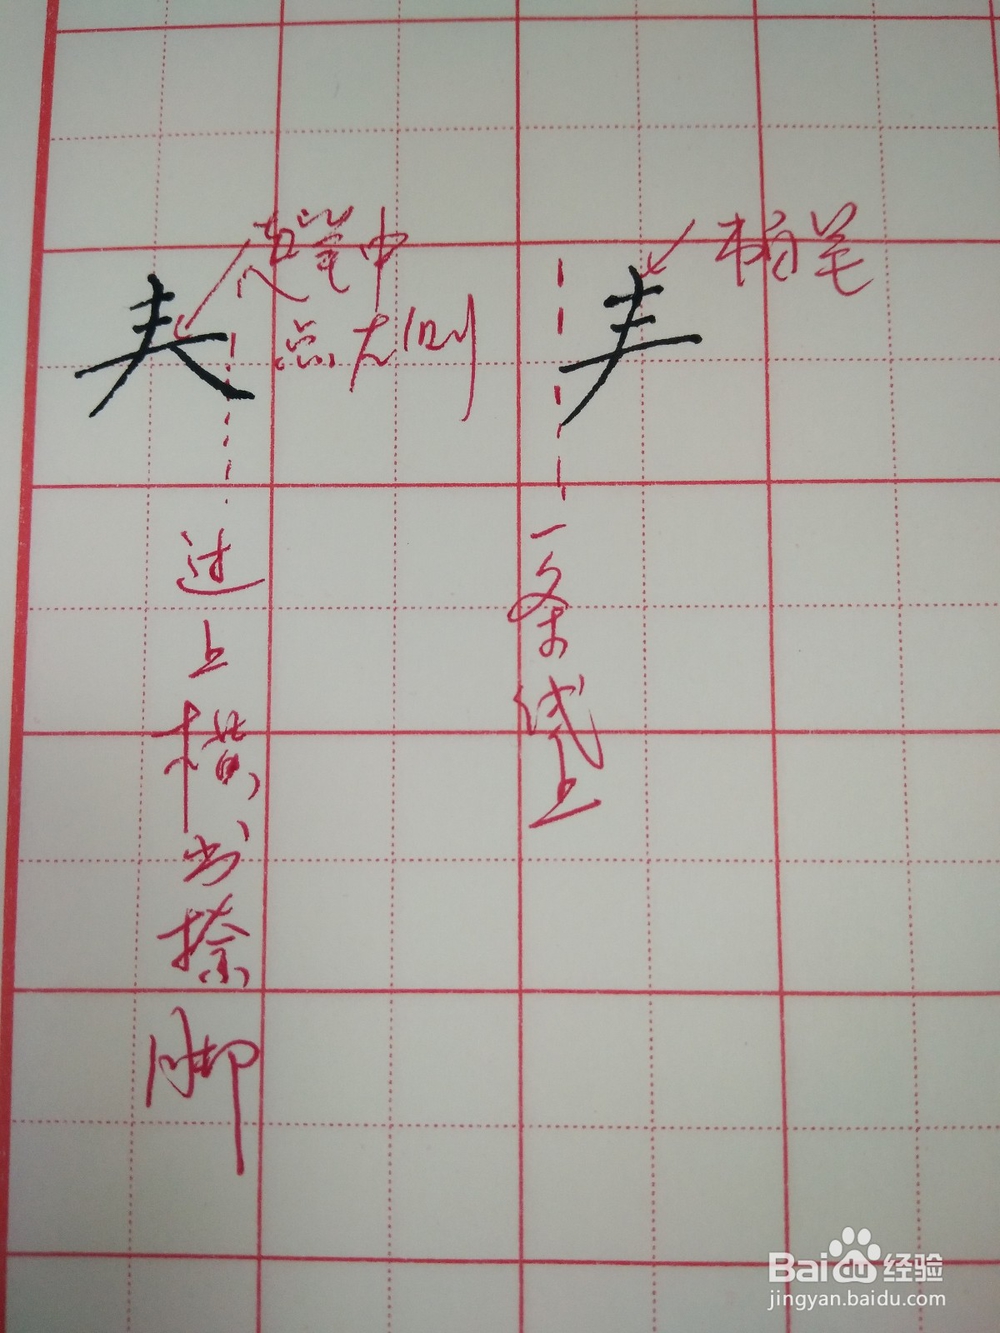 起笔中
点右侧
过上横出捺脚
相笔
一条线上
Baidu经验
jingyan.baidu.com